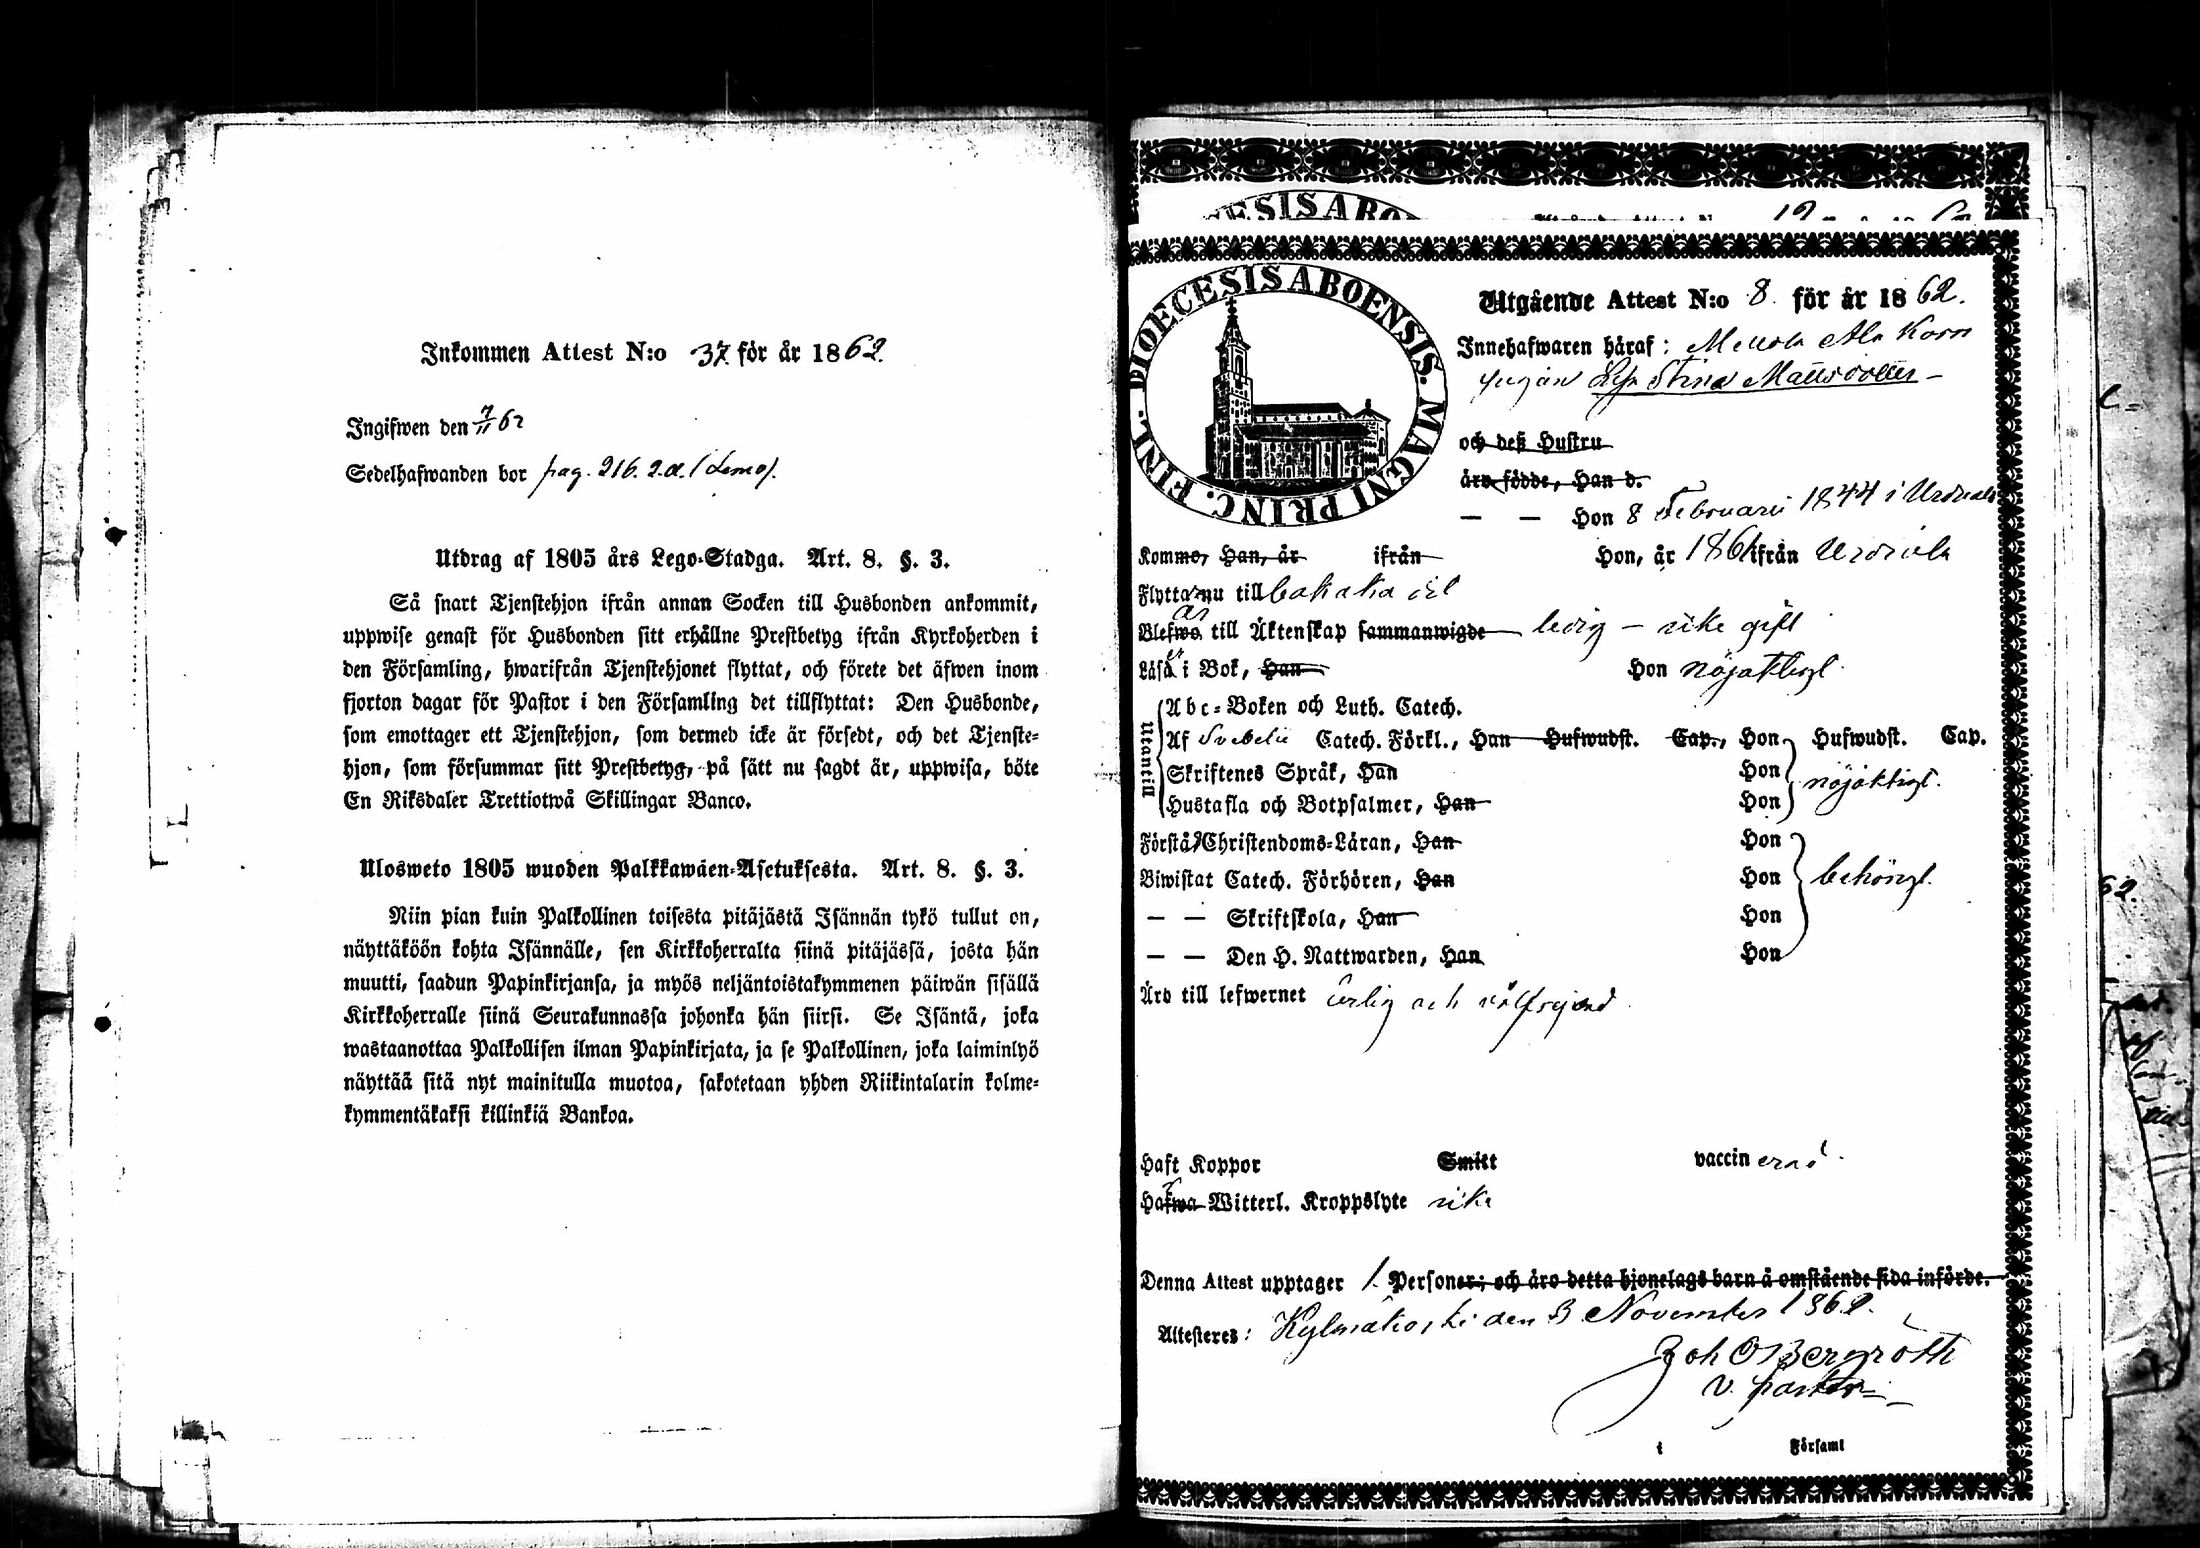 Inkommen Attest N:o 37. för år 1862.
Ingifwen den 7/11 62
Sedelhafwanden bor pag. 216. 2.d. (Lemo).
Utdrag af 1805 års Lego-Stadga. Art. 8. §. 3.
Så snart Tjenstehjon ifrån annan Socken till Husbonden ankommit,
uppwise genast för Husbonden sitt erhållne Prestbetyg ifrån Kyrkoherden i
den Församling, hwarifrån Tjenstehjonet flyttat, och förete det äfwen inom
fjorton dagar för Pastor i den Församling det tillflyttat: Den Husbonde,
som emottager ett Tjenstehjon, som dermed icke är försedt, och det Tjenste-
hjon, som försummar sitt Prestbetyg, på sätt nu sagdt är, uppwisa, böte
En Riksdaler Trettiotwå Skillingar Banco.
Ulosweto 1805 wuoden Palkkawäen-Asetuksesta. Art. 8. §. 3.
Niin pian kuin Palkollinen toisesta pitäjästä Isännän tykö tullut on,
näyttäköön kohta Isännälle, sen Kirkkoherralta siinä pitäjässä, josta hän
muutti, saadun Papinkirjansa, ja myös neljäntoistakymmenen päiwän sisällä
Kirkkoherralle siinä Seurakunnassa johonka hän siirsi. Se Isäntä, joka
wastaanottaa Palkollisen ilman Papinkirjata, ja se Palkollinen, joka laiminlyö
näyttää sitä nyt mainitulla muotoa, sakotetaan yhden Riikintalarin kolme-
kymmentäkaksi killinkiä Bankoa.
DIOECESIS ABOENSIS. MAGNI PRINC. FINL.
Utgående Attest N:o 8. för år 1862.
Innehafwaren häraf: Mellola Ala Kors
pigan Stina Mattsdotter
och deß Hustru
äro födde, Han d.
— — Hon 8 Februarii 1844 i
Kommo, Han, år ifrån Hon, år ifrån Urdiala
Flytta nu till
Blefwo till Äktenskap sammanwigde ledig – icke gift
Läsa i Bok, Han Hon nöjaktigt.
Utantill
Abc-Boken och Luth. Catech.
Af Svebelii Catech. Förkl., Han Hufwudst. Cap., Hon Hufwudst. Cap.
Skriftenes Språk, Han Hon nöjaktigt.
Hustafla och Botpsalmer, Han Hon
Förstå Christendoms-Läran, Han Hon
Biwistat Catech. Förhören, Han Hon behörigt.
— — Skriftskola, Han Hon
— — Den H. Nattwarden, Han Hon
Äro till lefwernet ärlig och välfrejdad
Haft Koppor Smitt vaccinerad.
Hafwa Witterl. Kroppslyte icke
Denna Attest upptager 1. Personer; och äro detta hjonelags barn å omstående sida införde.
Attesteres: Kylmäkoski den 3 November 1862.
Joh O Bergroth
v. pastor
i Församl